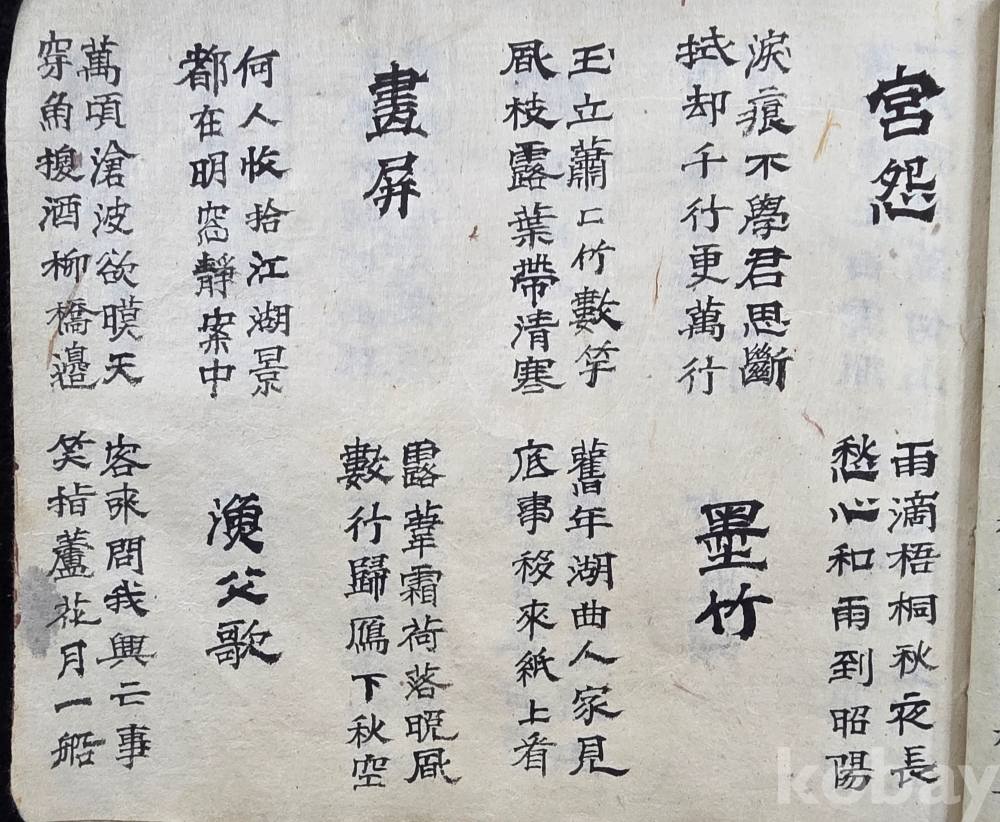 宮怨
雨滴梧桐秋夜長
愁心和雨到昭陽
淚痕不學君思斷
拭却千行更萬行
墨竹
玉立蕭々竹數竿
風枝露葉帶清寒
舊年湖曲人家見
底事移來紙上看
畫屏
露葦霜荷落晩風
數行歸鴈下秋空
何人收拾江湖景
都在明窓靜案中
漁父歌
萬頃滄波欲暯天
穿魚換酒柳橋邊
客來問我興亡事
笑指蘆花月一船
kobay